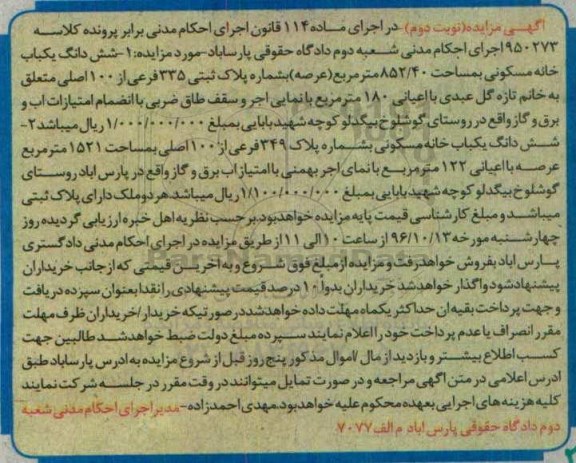 آگهی مزایده(نوبت دوم)-در اجرای ماده ۱۱۴ قانون اجرای احکام مدنی برابر پرونده کلاسه
۹۵۰۲۷۳ اجرای احکام مدنی شعبه دوم دادگاه حقوقی پارساباد-مورد مزایده: ۱-شش دانگ یکباب
خانه مسکونی بمساحت ۸۵۲/۴۰ مترمربع (عرصه) بشماره پلاک ثبتی ۳۳۵ فرعی از ۱۰۰ اصلی متعلق
به خانم تازه گل عبدی با اعیانی ۱۸۰ مترمربع با نمایی اجر و سقف طاق ضربی با انضمام امتیازات اب و
برق و گاز واقع در روستای گوشلوخ بیگدلو کوچه شهید بابایی بمبلغ ۱/۰۰۰/۰۰۰/۰۰۰ ریال میباشد ۲-
شش دانگ یکباب خانه مسکونی بشماره پلاک ۳۴۹ فرعی از ۱۰۰ اصلی بمساحت ۱۵۲۱ مترمربع
عرصه با اعیانی ۱۲۲ مترمربع با نمای اجر بهمنی با امتیاز اب برق و گاز واقع در پارس اباد روستای
گوشلوخ بیگدلو کوچه شهید بابایی بمبلغ ۱/۱۰۰/۰۰۰/۰۰۰ ریال میباشد. هر دو ملک دارای پلاک ثبتی
میباشد و مبلغ کارشناسی قیمت پایه مزایده خواهد بود. بر حسب نظریه اهل خبره ارزیابی گردیده روز
چهارشنبه مورخه ۹۶/۱۰/۱۳ از ساعت ۱۰ الی ۱۱ از طریق مزایده در اجرای احکام مدنی دادگستری
پارس اباد بفروش خواهد رفت و مزایده از مبلغ فوق شروع و به اخرین قیمتی که از جانب خریداران
پیشنهاد شود واگذار خواهد شد خریداران بدوا ۱۰ درصد قیمت پیشنهادی را نقدا بعنوان سپرده دریافت
و جهت پرداخت بقیه ان حداکثر یکماه مهلت داده خواهد شد در صورتیکه خریدار/خریداران ظرف مهلت
مقرر انصراف یا عدم پرداخت خود را اعلام نمایند سپرده مبلغ دولت ضبط خواهد شد. طالبین جهت
کسب اطلاع بیشتر و بازدید از مال /اموال مذکور پنج روز قبل از شروع مزایده به ادرس پارساباد طبق
ادرس اعلامی در متن اگهی مراجعه و در صورت تمایل میتوانند در وقت مقرر در جلسه شرکت نمایند
کلیه هزینه های اجرایی بعهده محکوم علیه خواهد بود. مهدی احمدزاده-مدیر اجرای احکام مدنی شعبه
دوم دادگاه حقوقی پارس اباد م الف ۷۰۷۷